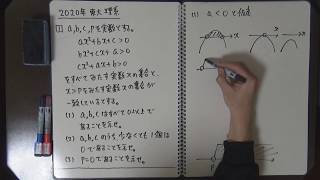 2020年 東大 理系
1 a, b, c, pを実数とする。
ax²+bx+c>0
bx²+cx+a>0
cx²+ax+b>0
をすべてみたす実数xの集合と、
x>pをみたす実数xの集合が
一致しているとする。
(1) a, b, cはすべて0以上で
あることを示せ。
(2) a, b, cのうち少なくとも1個は
0であることを示せ。
(3) p=0であることを示せ。
(1) a<0 と仮定
x
x